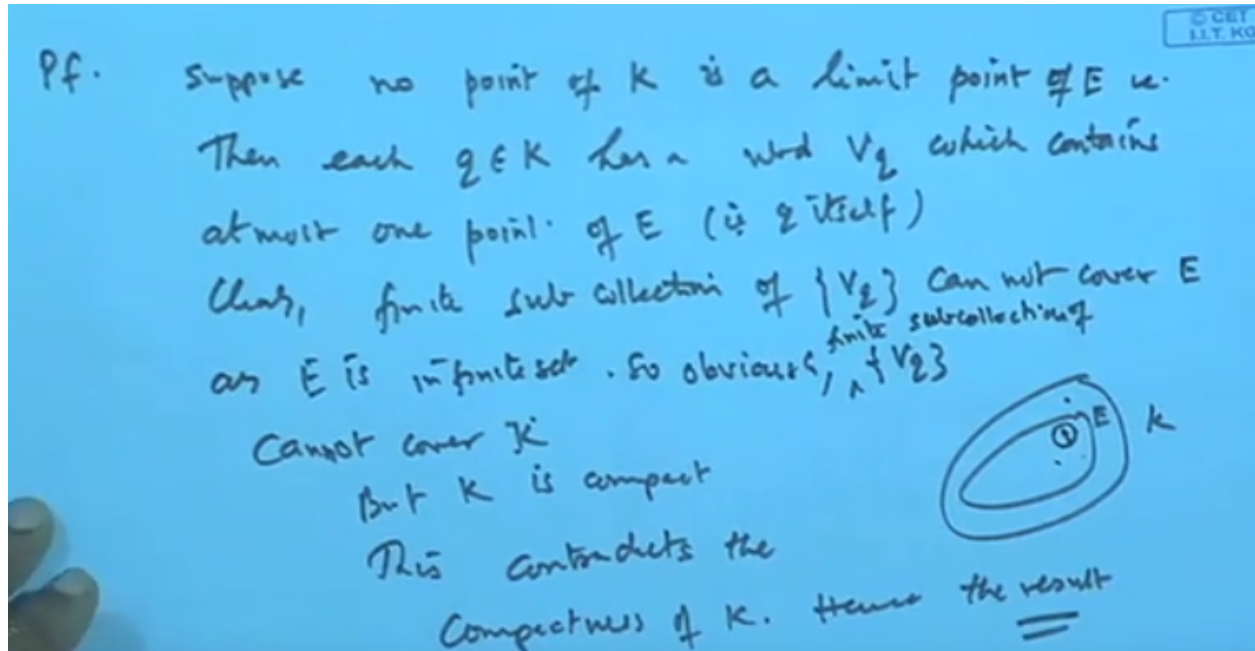 © CET
I.I.T. KG
Pf. Suppose no point of K is a limit point of E ie.
Then each q ∈ K has a nbd Vq which contains
atmost one point of E (ie q itself)
Clearly, finite sub collection of {Vq} can not cover E
as E is infinite set. So obviously, ^ finite subcollection of {Vq}
Cannot cover K
But K is compact
This contradicts the
Compactness of K. Hence the result
E K